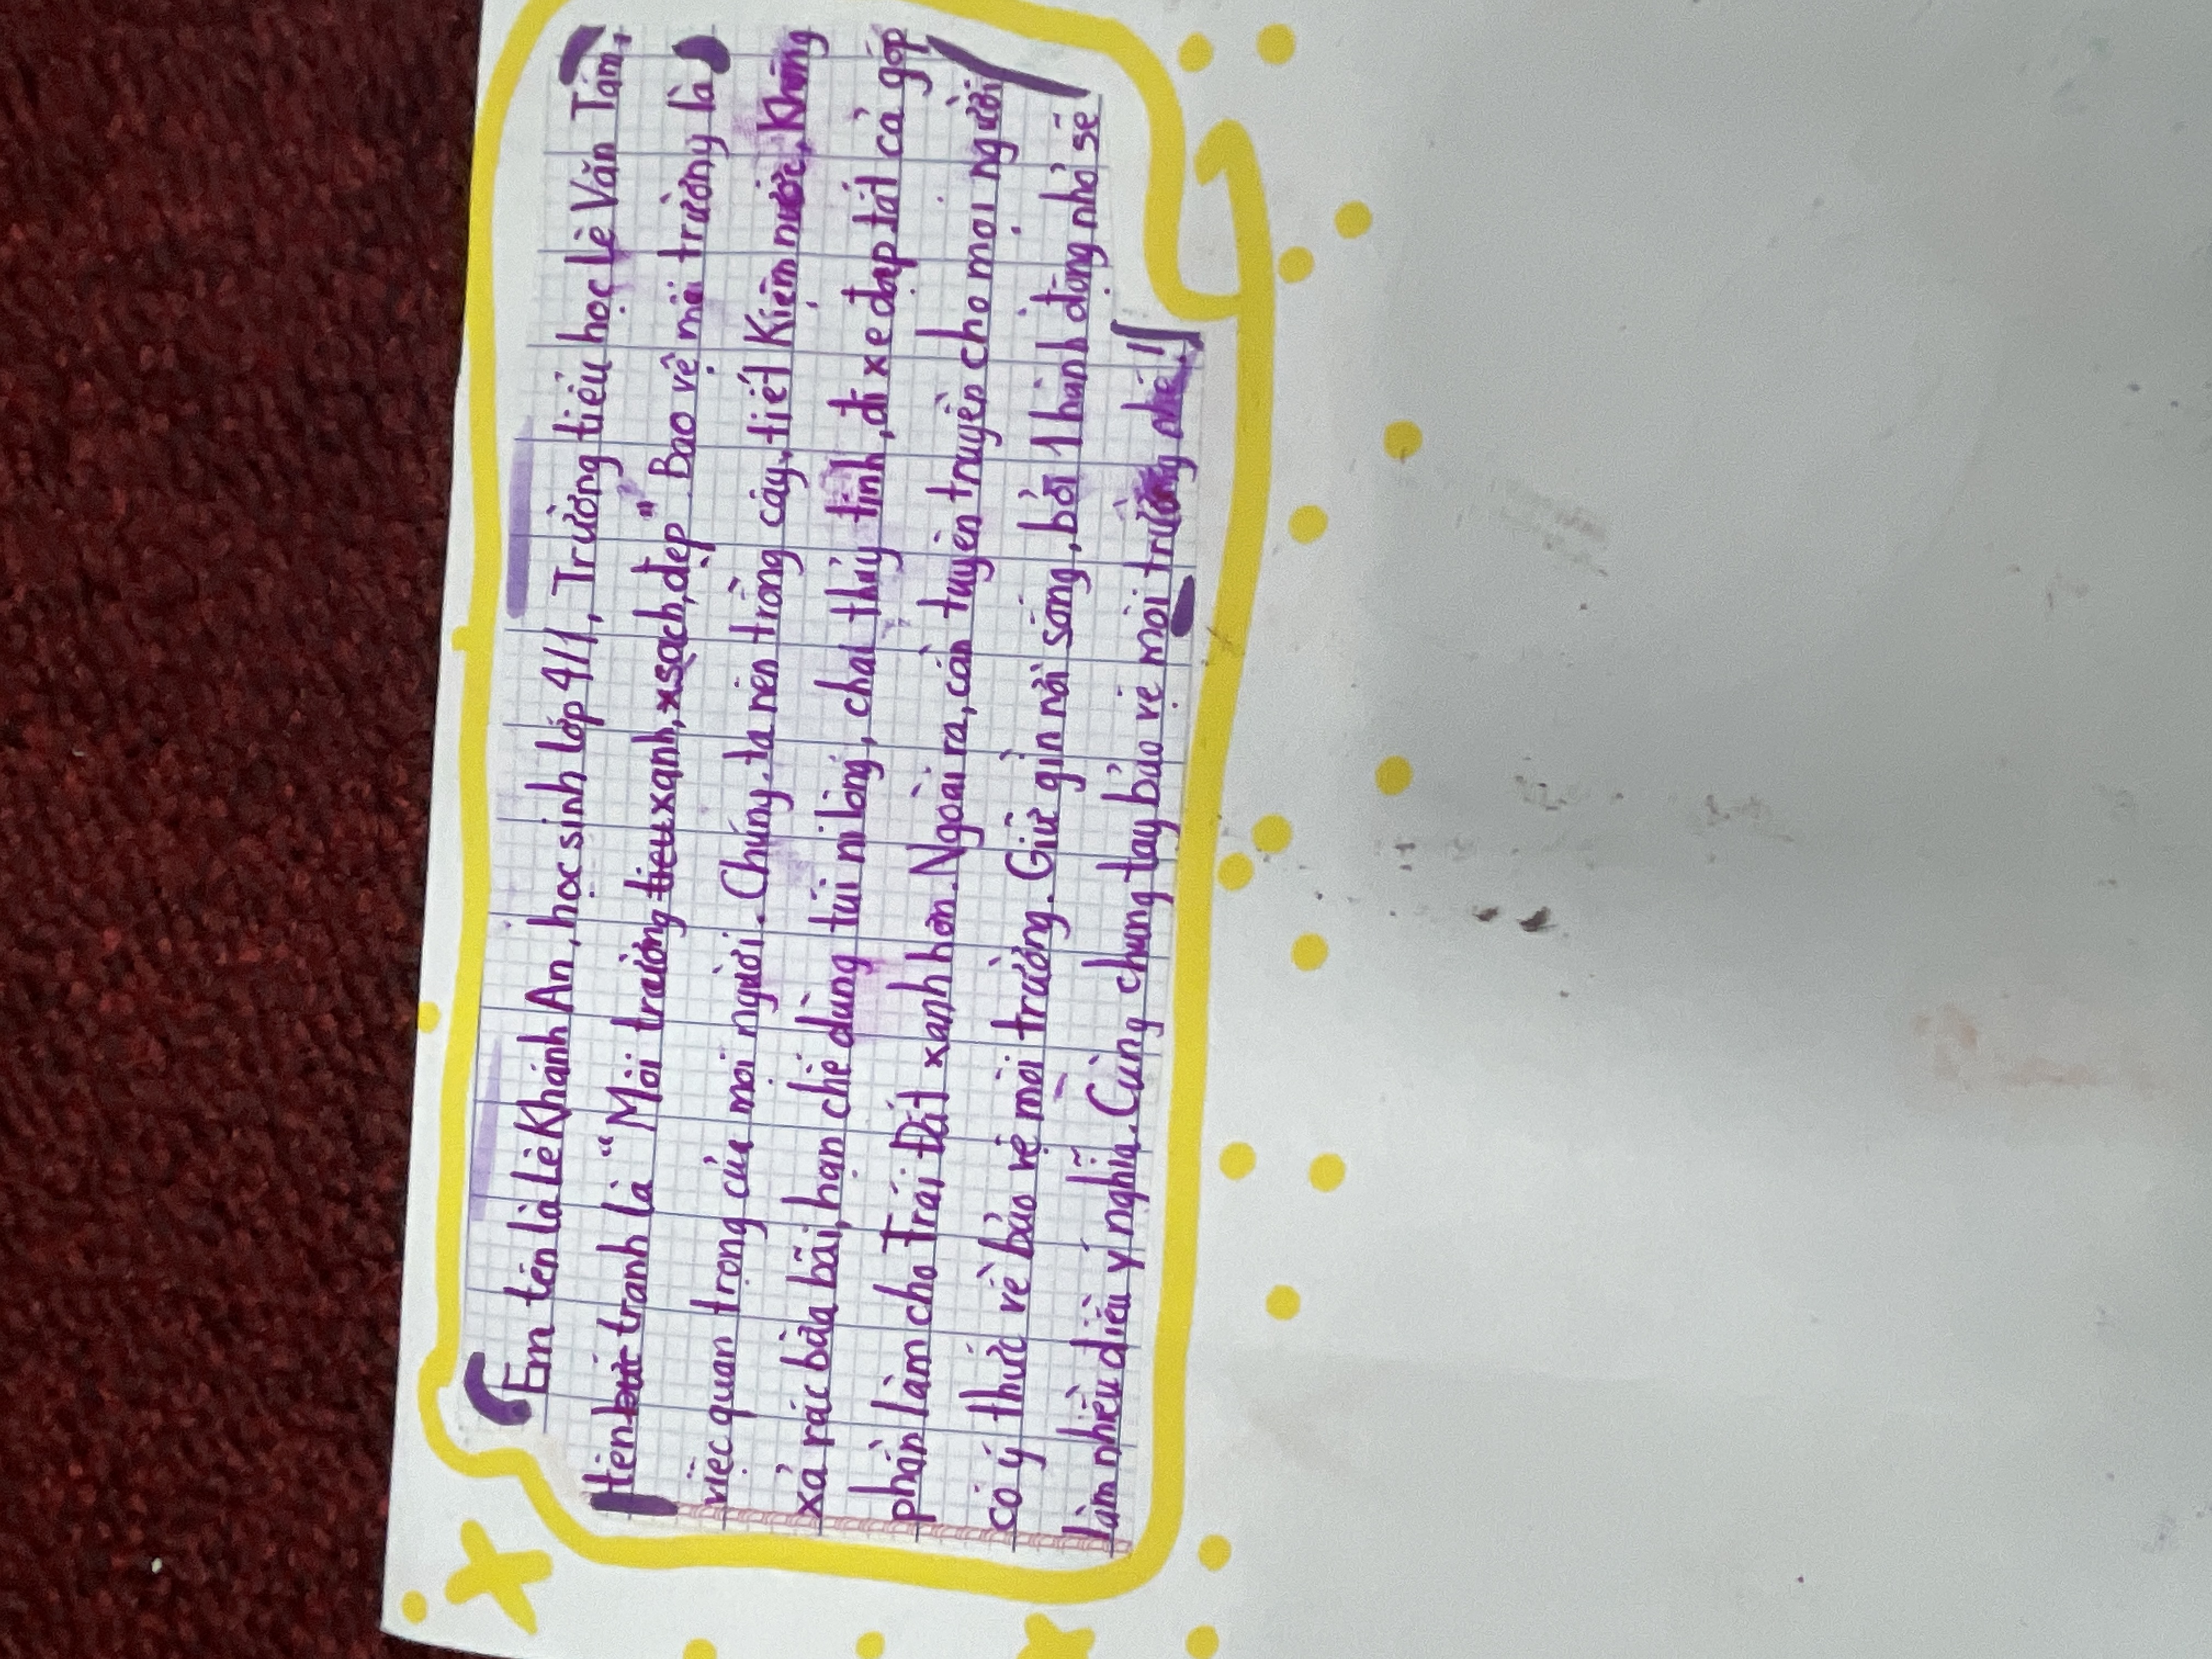 Em tên là Lê Khánh An, học sinh lớp 4/1, Trường tiểu học Lê Văn Tám,
tên bức tranh là "Môi trường tiêu xanh, x sạch, đẹp". Bảo vệ môi trường là
việc quan trọng của mọi người. Chúng ta nên trồng cây, tiết kiệm nước, không
xả rác bừa bãi, hạn chế dùng túi ni lông, chai thủy tinh, đi xe đạp tất cả góp
phần làm cho Trái Đất xanh hơn. Ngoài ra, cần tuyên truyền cho mọi người
có ý thức về bảo vệ môi trường. Giữ gìn nơi sống, bởi 1 hành động nhỏ sẽ
làm nhiều điều ý nghĩa. Cùng chung tay bảo vệ môi trường nhé!